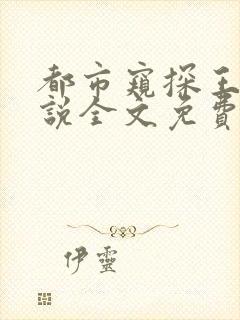 都市窺探王
說全文免費
伊靈